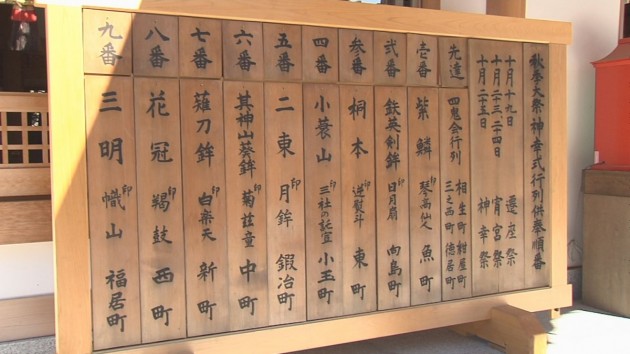 秋季大祭神幸式行列供奉順番
十月十九日 遷座祭
十月二十三、二十四日 宵宮祭
十月二十五日 神幸祭
先達 四鬼会行列 相生町 紺屋町 三之西町 徳居町
壱番 紫鱗 印 琴高仙人 魚町
弐番 鉄英剣鉾 印 日月扇 向島町
参番 桐本 印 逆熨斗 東町
四番 小蓑山 印 三社の託宣 小玉町
五番 二東 印 月鉾 鍛冶町
六番 其神山葵鉾 印 菊慈童 中町
七番 薙刀鉾 印 白楽天 新町
八番 花冠 印 羯鼓 西町
九番 三明 印 幟山 福居町